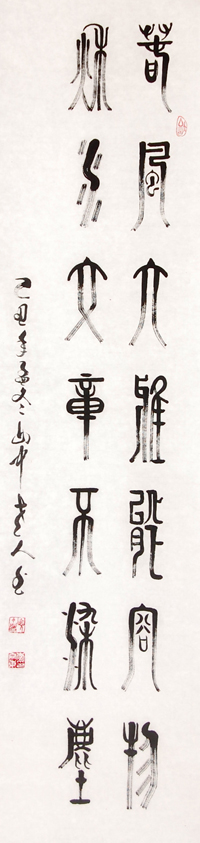 春風大雅能容物
秋水文章不染塵
己丑年孟冬山中老人书